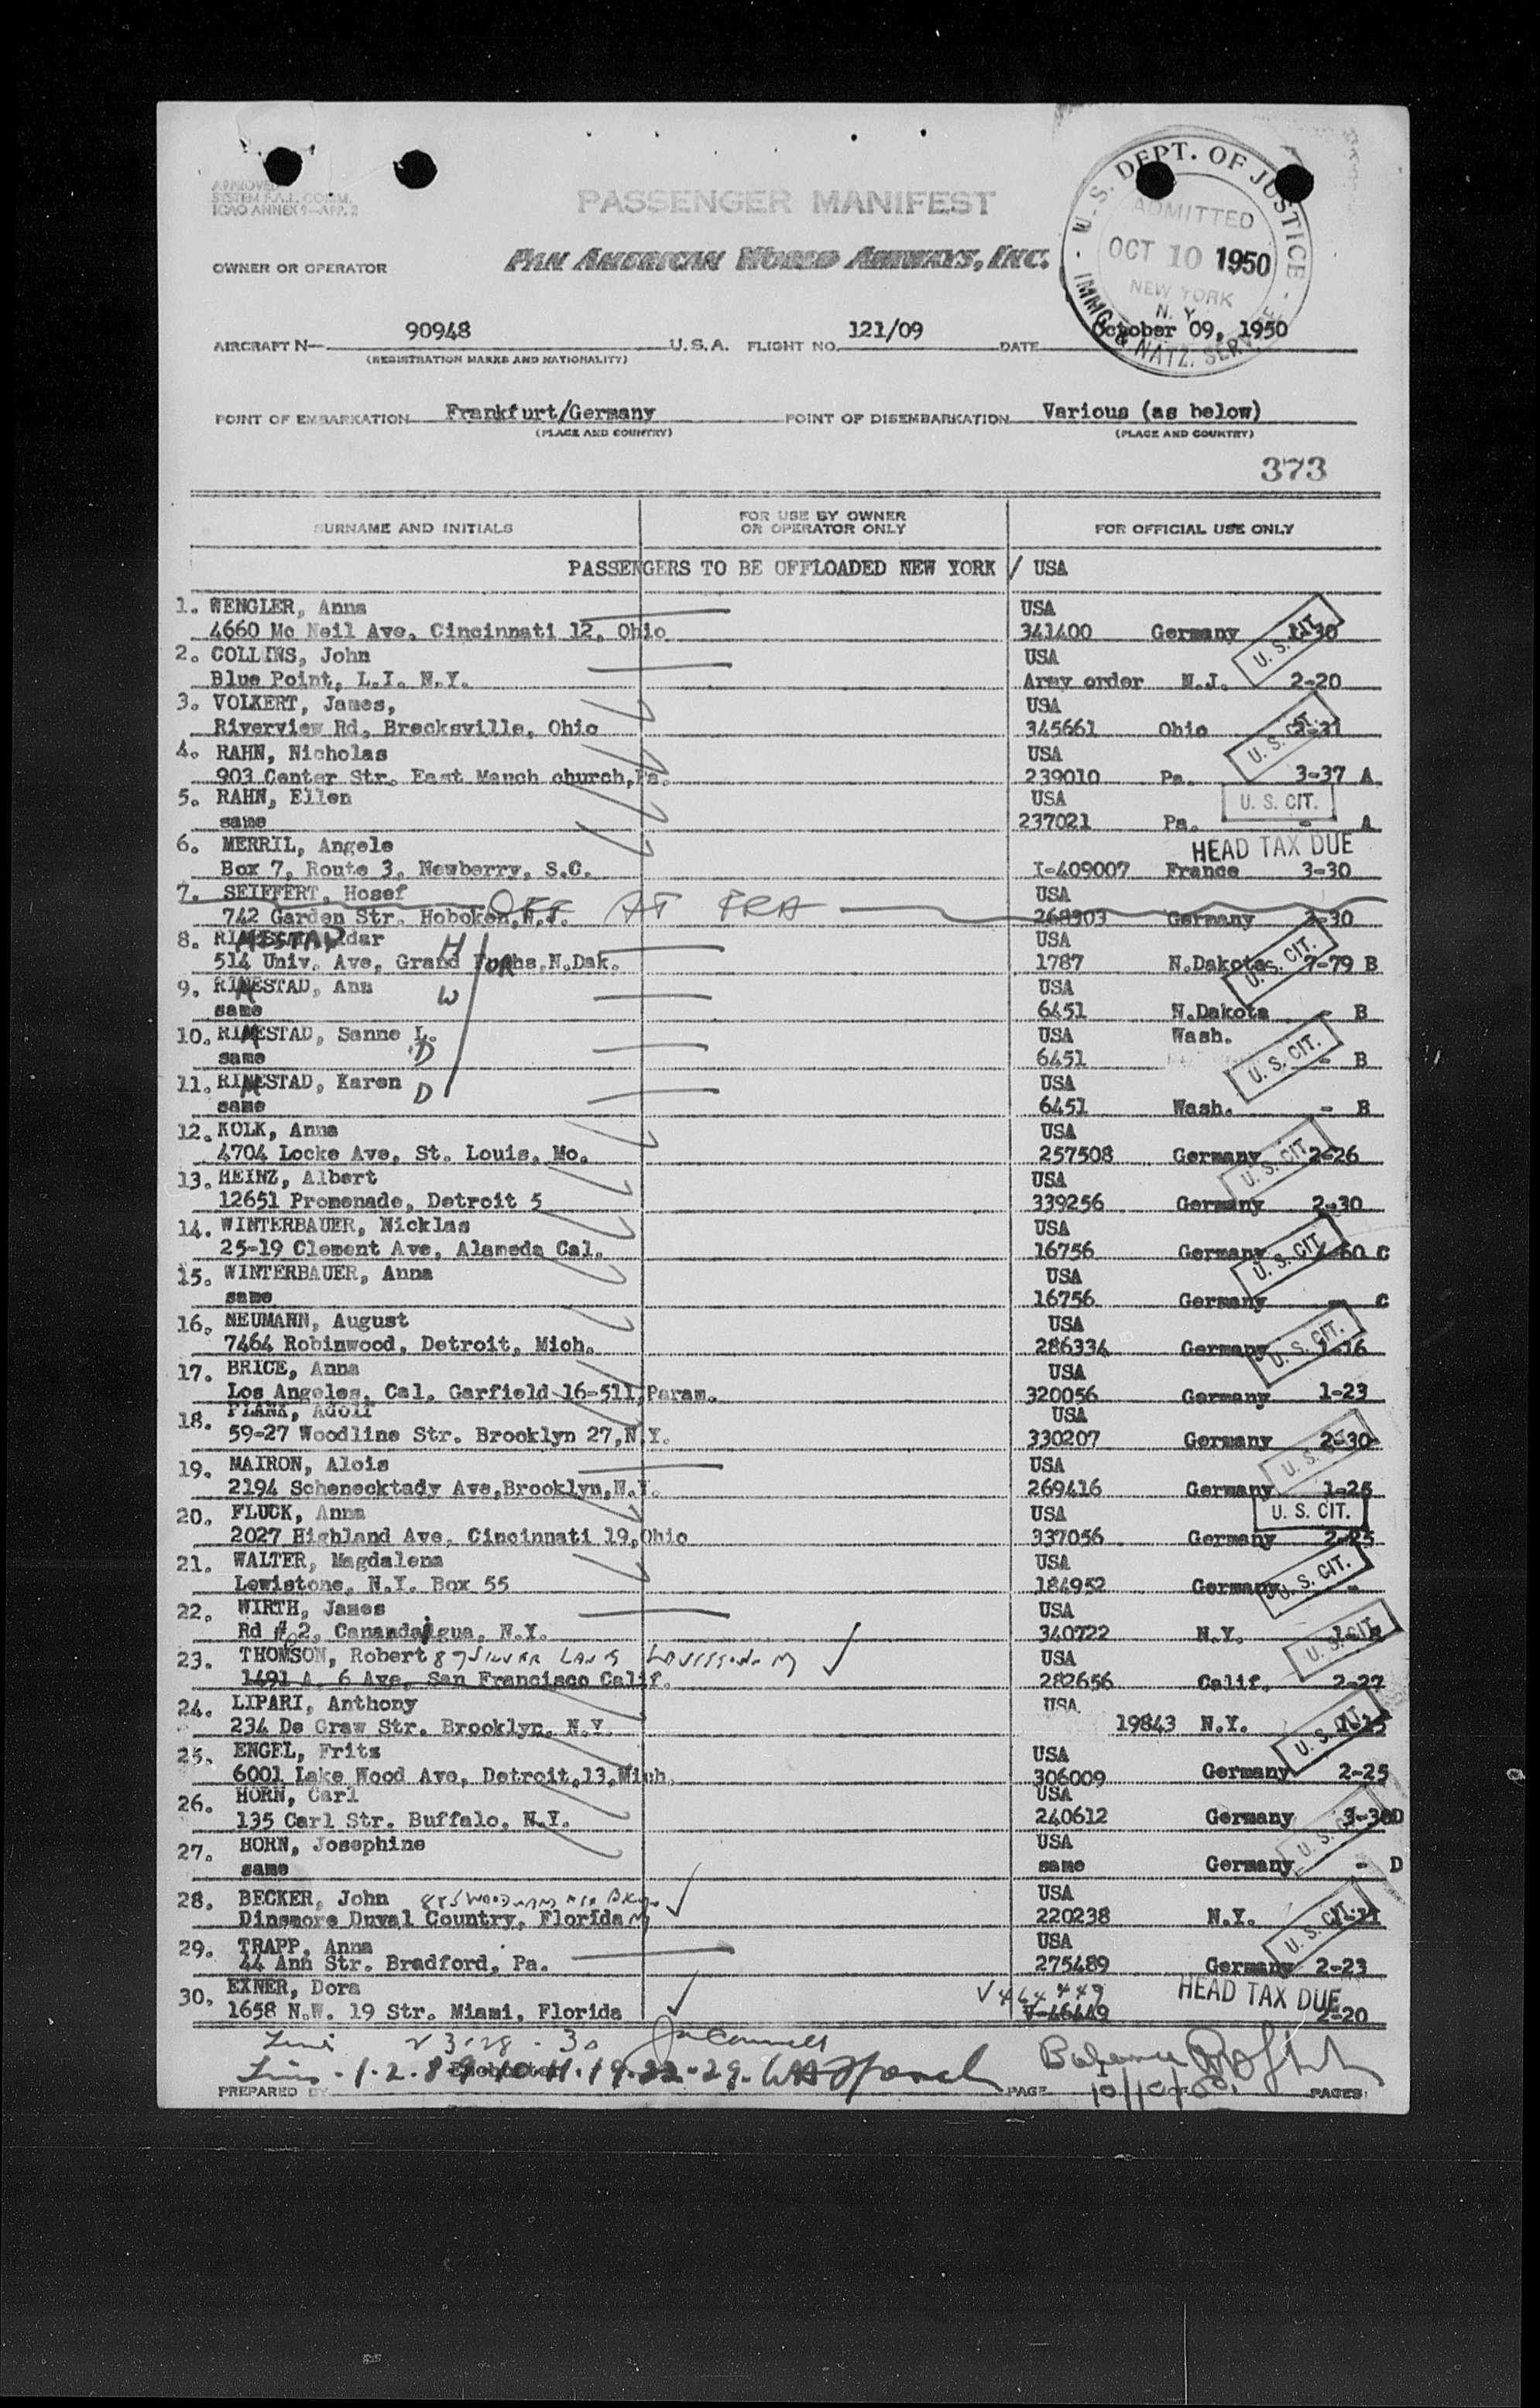 APPROVED
SYSTEM P.A.I. COMM.
ICAO ANNEX 9—APP. 2
PASSENGER MANIFEST
U. S. DEPT. OF JUSTICE
ADMITTED
OCT 10 1950
NEW YORK
N. Y.
IMMG. & NATZ. SERVICE
OWNER OR OPERATOR PAN AMERICAN WORLD AIRWAYS, INC.
AIRCRAFT N— 90948 U.S.A. FLIGHT NO. 121/09 DATE October 09, 1950
(REGISTRATION MARKS AND NATIONALITY)
POINT OF EMBARKATION Frankfurt/Germany POINT OF DISEMBARKATION Various (as below)
(PLACE AND COUNTRY) (PLACE AND COUNTRY)
373
SURNAME AND INITIALS FOR USE BY OWNER OR OPERATOR ONLY FOR OFFICIAL USE ONLY
PASSENGERS TO BE OFFLOADED NEW YORK / USA
1. WENGLER, Anna USA
4660 Mc Neil Ave, Cincinnati 12, Ohio 341400 Germany 1-30 U. S. CIT.
2. COLLINS, John USA
Blue Point, L.I. N.Y. Army order N.J. 2-20
3. VOLKERT, James, USA
Riverview Rd, Brecksville, Ohio 345661 Ohio 2-31 U. S. CIT.
4. RAHN, Nicholas USA
903 Center Str. East Mauch church, Pa. 239010 Pa. 3-37 A
5. RAHN, Ellen USA U. S. CIT.
same 237021 Pa. - A
6. MERRIL, Angele HEAD TAX DUE
Box 7, Route 3, Newberry, S.C. I-409007 France 3-30
7. SEIFFERT, Hosef OFF AT FRA USA
742 Garden Str. Hoboken, N.J. 268303 Germany 2-30
8. RIMESTAD, Eldar H USA
514 Univ. Ave, Grand Forks, N.Dak. 1787 N.Dakota 7-79 B U. S. CIT.
9. RIMESTAD, Ann W USA
same 6451 N.Dakota - B
10. RIMESTAD, Sanne L. D USA Wash.
same 6451 - B U. S. CIT.
11. RIMESTAD, Karen D USA
same 6451 Wash. - B
12. KOLK, Anna USA
4704 Locke Ave, St. Louis, Mo. 257508 Germany 2-26 U. S. CIT.
13. HEINZ, Albert USA
12651 Promenade, Detroit 5 339256 Germany 2-30
14. WINTERBAUER, Nicklas USA
25-19 Clement Ave, Alameda Cal. 16756 Germany -60 C U. S. CIT.
15. WINTERBAUER, Anna USA
same 16756 Germany - C
16. NEUMANN, August USA
7464 Robinwood, Detroit, Mich. 286334 Germany 1-16 U. S. CIT.
17. BRICE, Anna USA
Los Angeles, Cal. Garfield 16-511, Param. 320056 Germany 1-23
18. PLANK, Adolf USA
59-27 Woodline Str. Brooklyn 27, N.Y. 330207 Germany 2-30
19. MAIRON, Alois USA U. S. CIT.
2194 Schenecktady Ave, Brooklyn, N.Y. 269416 Germany 1-25
20. FLUCK, Anna USA U. S. CIT.
2027 Highland Ave, Cincinnati 19, Ohio 337056 Germany 2-25
21. WALTER, Magdalena USA
Lewistone, N.Y. Box 55 184952 Germany - U. S. CIT.
22. WIRTH, James USA
Rd # 2, Canandaigua, N.Y. 340722 N.Y. U. S. CIT.
23. THOMSON, Robert 87 SILVER LANE USA
1491 A. 6 Ave, San Francisco Calif. 282656 Calif. 2-27
24. LIPARI, Anthony USA
234 De Graw Str. Brooklyn, N.Y. 19843 N.Y. U. S. CIT.
25. ENGEL, Fritz USA
6001 Lake Wood Ave, Detroit, 13, Mich. 306009 Germany 2-25
26. HORN, Carl USA
135 Carl Str. Buffalo, N.Y. 240612 Germany 3-38 D U. S. CIT.
27. HORN, Josephine USA
same same Germany - D
28. BECKER, John USA
Dinsmore Duval Country, Florida 220238 N.Y. 1-11 U. S. CIT.
29. TRAPP, Anna USA
44 Ann Str. Bradford, Pa. 275489 Germany 2-23
30. EXNER, Dora V464449 HEAD TAX DUE
1658 N.W. 19 Str. Miami, Florida V-46449 2-20
23-28-30
1.2.8.9.10.11.19.22-29.
PREPARED BY PAGE 10/10/50 OF PAGES